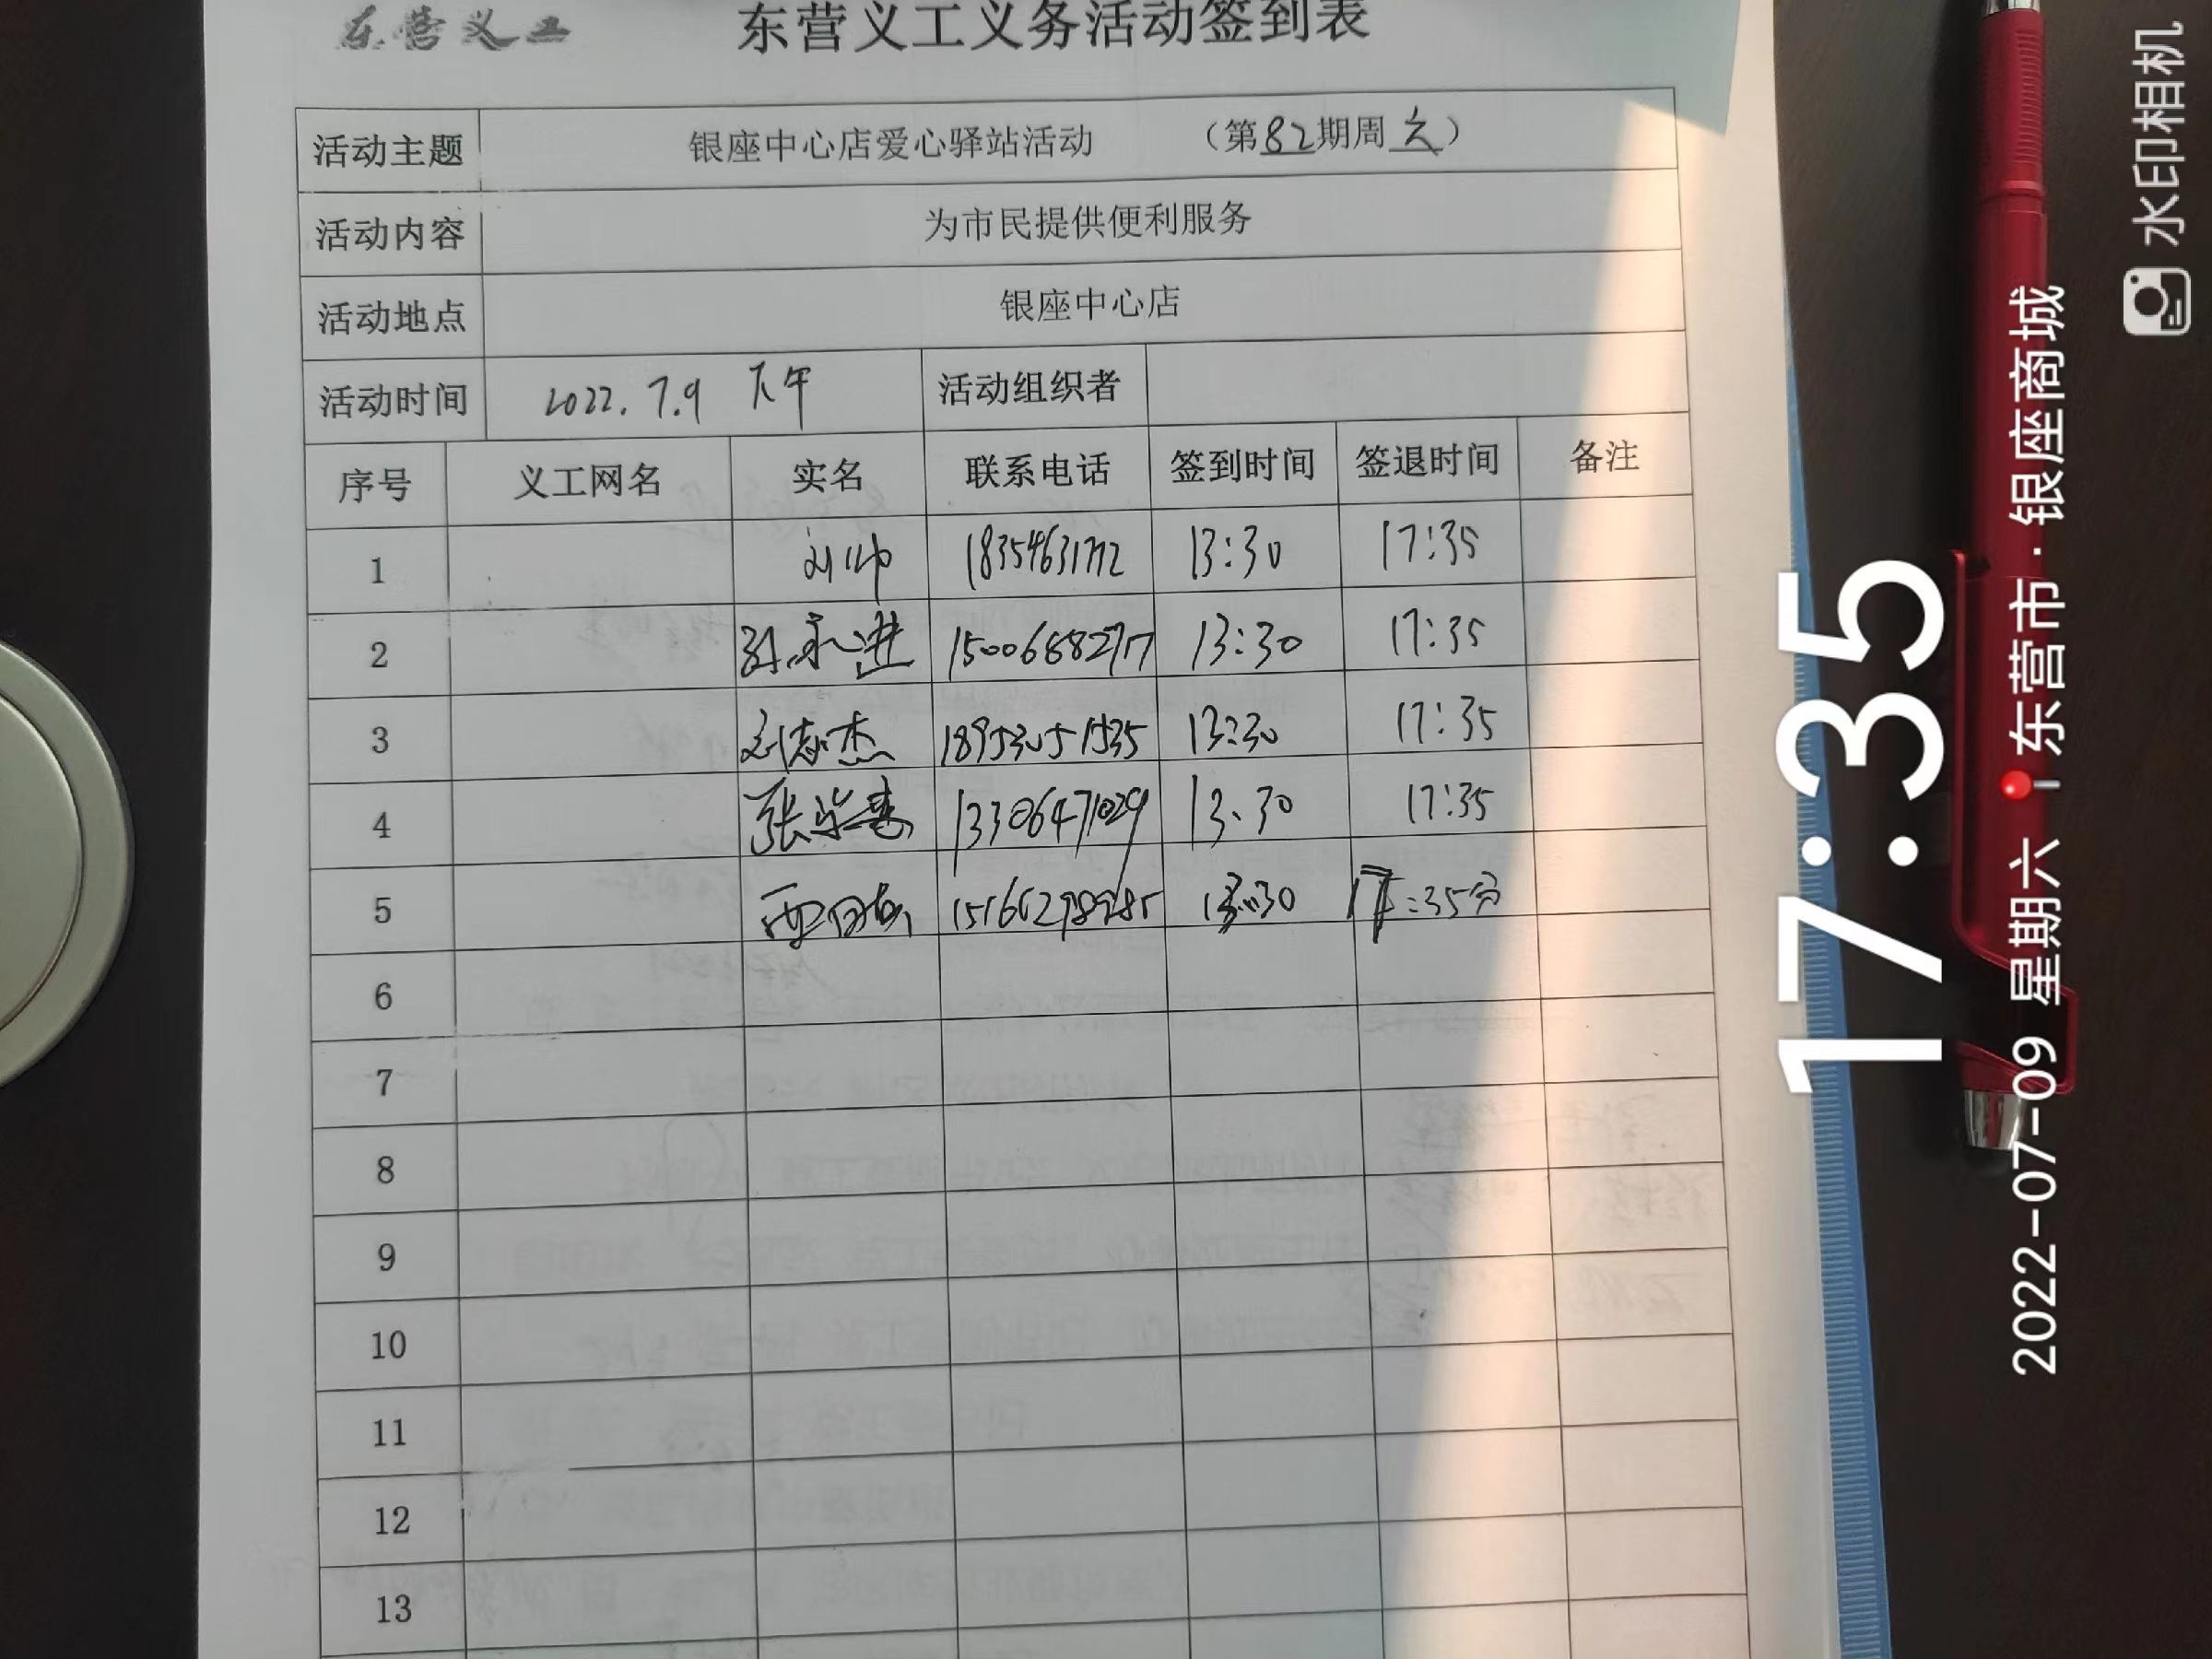 东营义工
东营义工义务活动签到表
活动主题 银座中心店爱心驿站活动 （第82期周六）
活动内容 为市民提供便利服务
活动地点 银座中心店
活动时间 2022.7.9 下午 活动组织者
序号 义工网名 实名 联系电话 签到时间 签退时间 备注
1 刘帅 13:30 17:35
2 孙永进 13:30 17:35
3 刘志杰 13:30 17:35
4 13306471029 13:30 17:35
5 13:30 17:35分
6
7
8
9
10
11
12
13
17:35
2022-07-09 星期六 东营市·银座商城
水印相机